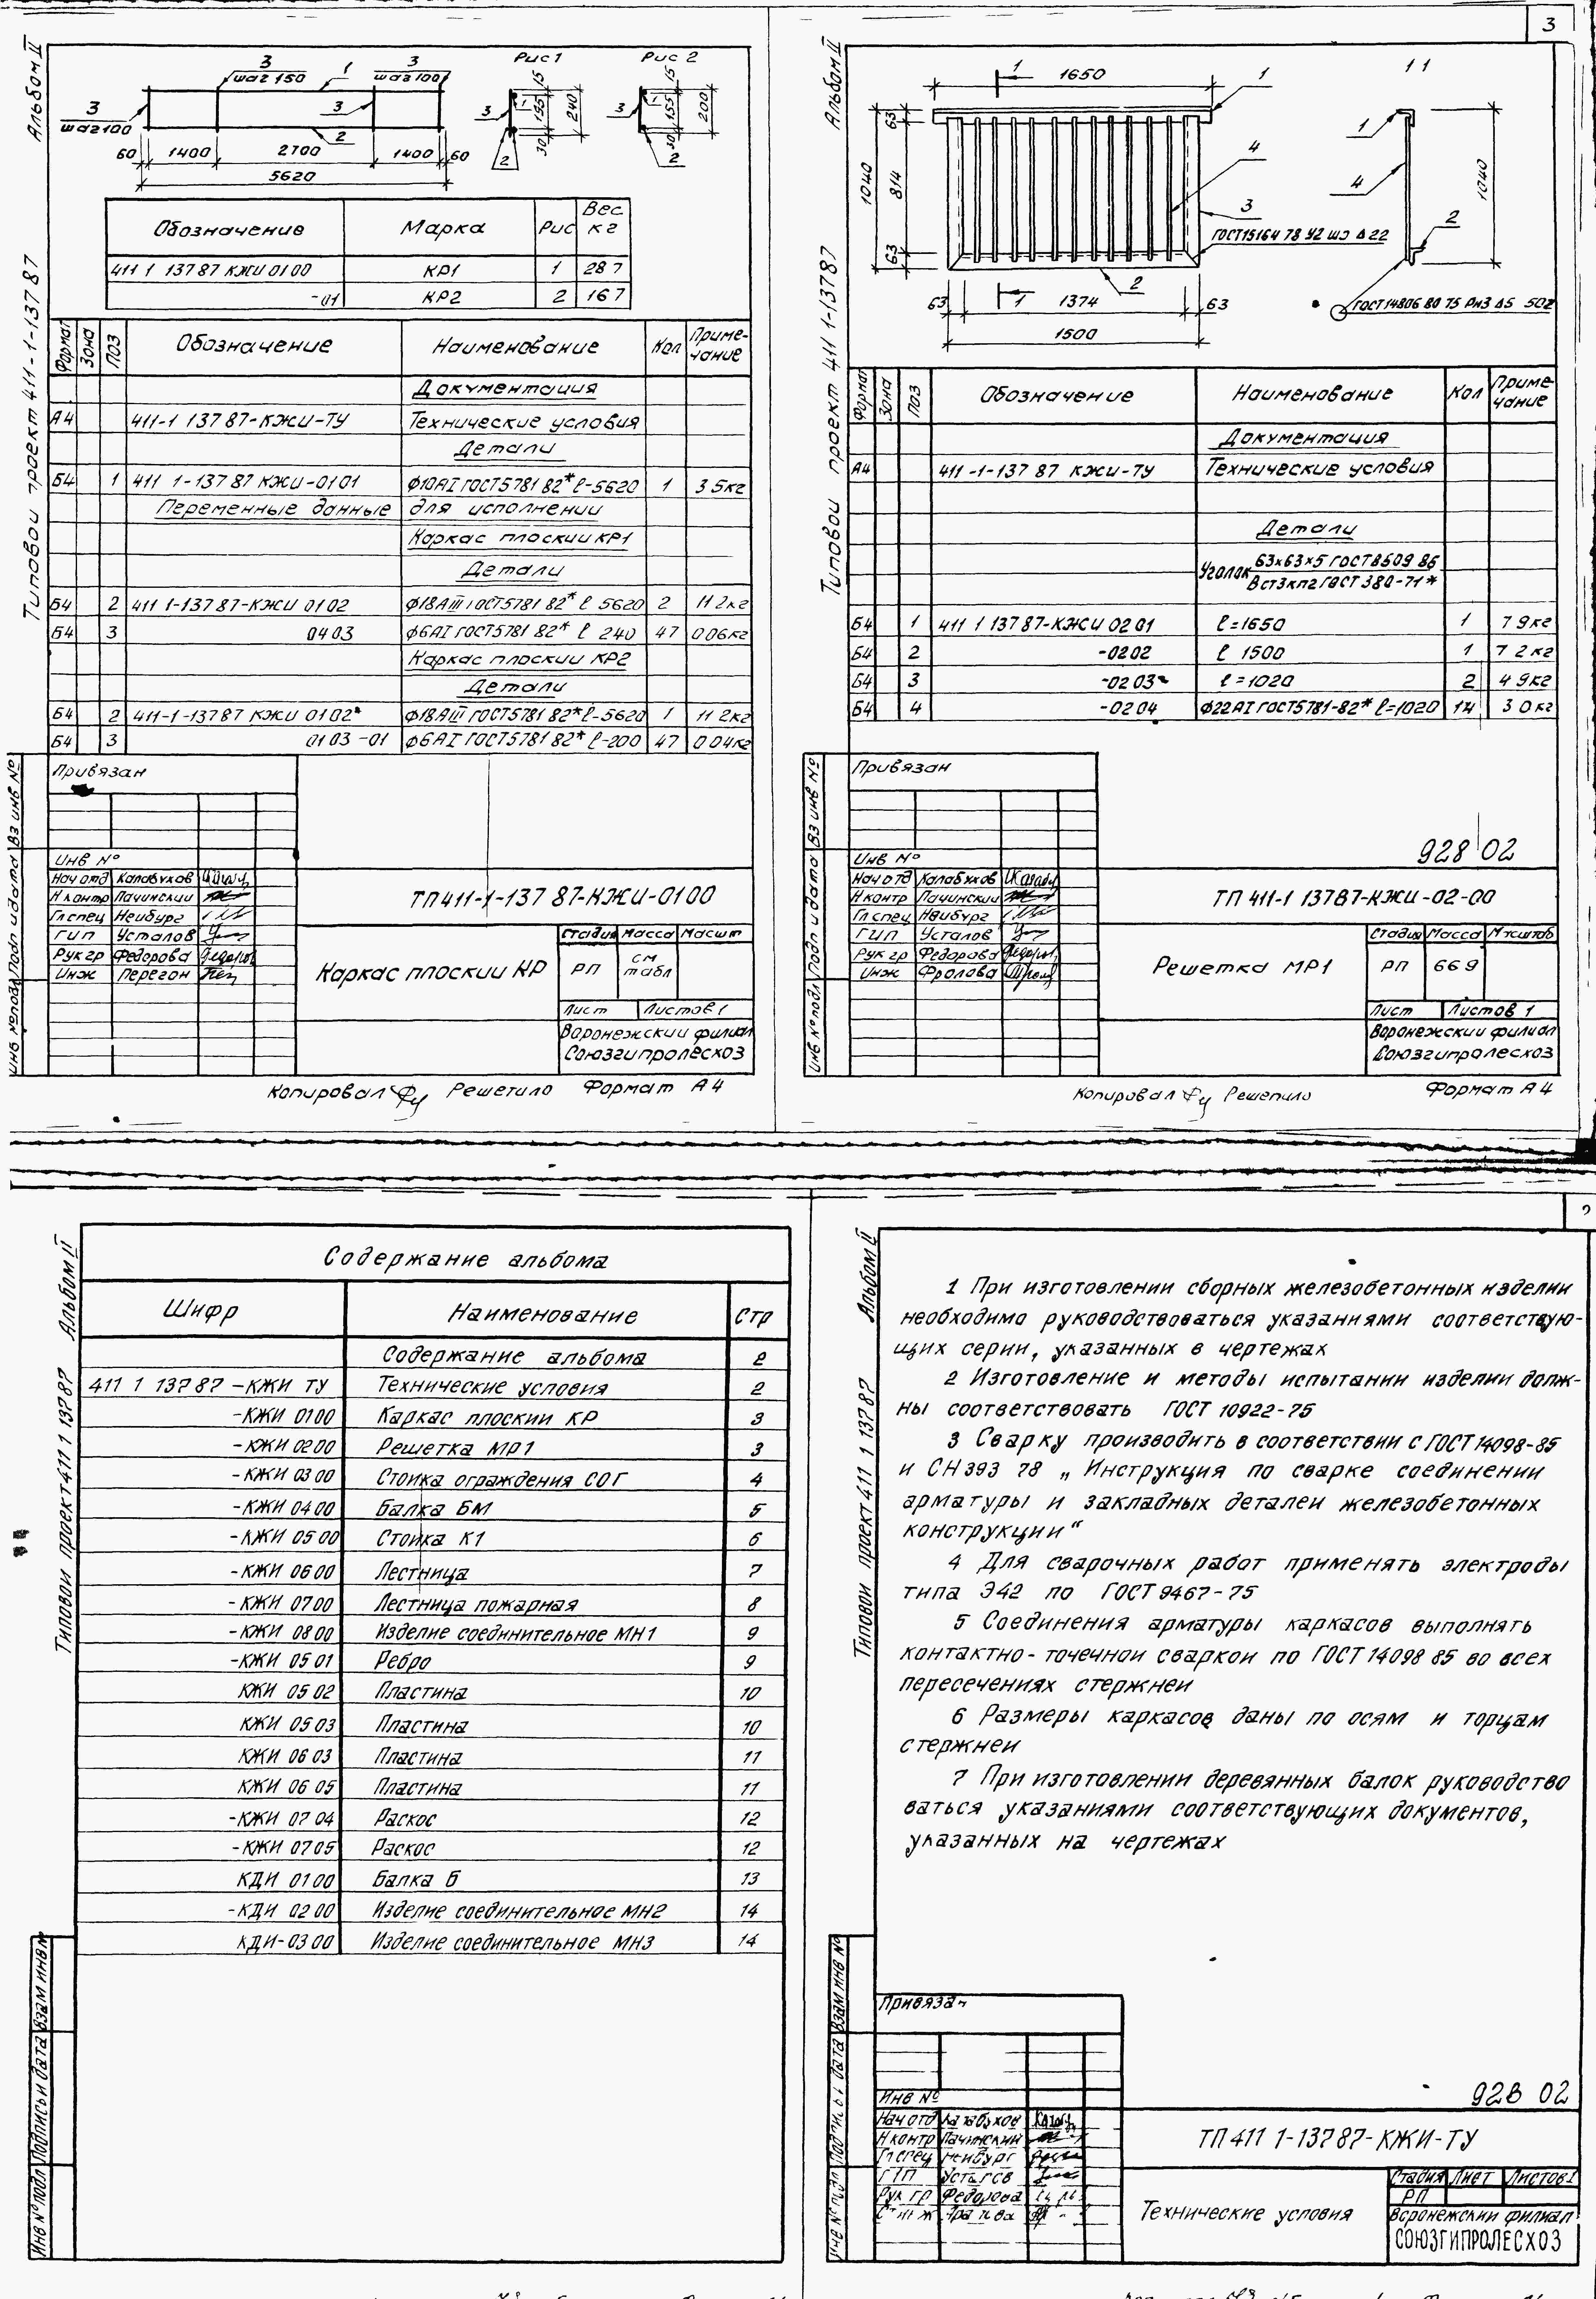 3
Альбом II
Типовой проект 411-1-137 87
3
шаг 150
1
3
шаг 100
3
шаг 100
3
2
60
1400
2700
1400
60
5620
Рис 1
15
3
1
195
240
30
2
Рис 2
15
3
1
155
200
30
2
Обозначение Марка Рис Вес кг
411 1 137 87 КЖИ 01 00 КР1 1 28 7
-01 КР2 2 16 7
Формат Зона Поз Обозначение Наименование Кол Приме-
чание
Документация
А4 411-1 137 87-КЖИ-ТУ Технические условия
Детали
Б4 1 411 1-137 87 КЖИ-01 01 ф10АI ГОСТ 5781 82* ℓ-5620 1 3 5кг
Переменные данные для исполнении
Каркас плоский КР1
Детали
Б4 2 411 1-137 87-КЖИ 01 02 ф18АIII ГОСТ 5781 82* ℓ 5620 2 11 2кг
Б4 3 04 03 ф6АI ГОСТ 5781 82* ℓ 240 47 0 06кг
Каркас плоский КР2
Детали
Б4 2 411-1-137 87 КЖИ 01 02 ф18АIII ГОСТ 5781 82* ℓ-5620 1 11 2кг
Б4 3 01 03 -01 ф6АI ГОСТ 5781 82* ℓ-200 47 0 04кг
Привязан
Инв №
Нач отд Калабухов
Н контр Пачинский
Гл спец Нейбург
ГИП Усталов
Рук гр Федорова
Инж Перегон
ТП 411-1-137 87-КЖИ-01 00
Каркас плоский КР
Стадия Масса Масшт
РП см
табл
Лист Листов 1
Воронежский филиал
Союзгипролесхоз
Инв № подл Подп и дата Вз инв №
Копировал Решетило Формат А4
Альбом II
Типовой проект 411 1-137 87
1
1650
1
63
1040
814
63
4
3
ГОСТ 15164 78 У2 шэ Δ 22
2
63
1
1374
63
1500
1 1
1
4
2
1040
ГОСТ 14806 80 Т5 Рн3 Δ5 50z
Формат Зона Поз Обозначение Наименование Кол Приме-
чание
Документация
А4 411-1-137 87 КЖИ-ТУ Технические условия
Детали
Уголок 63х63х5 ГОСТ 8509 86
Вст3кп2 ГОСТ 380-71*
Б4 1 411 1 137 87-КЖИ 02 01 ℓ=1650 1 7 9кг
Б4 2 -02 02 ℓ 1500 1 7 2кг
Б4 3 -02 03 ℓ=1020 2 4 9кг
Б4 4 -02 04 ф22АI ГОСТ 5781-82* ℓ=1020 14 3 0кг
Привязан
928 02
Инв №
Нач отд Калабухов
Н контр Пачинский
Гл спец Нейбург
ГИП Усталов
Рук гр Федорова
Инж Фролова
ТП 411-1 137 87-КЖИ-02-00
Решетка МР1
Стадия Масса Масштаб
РП 66 9
Лист Листов 1
Воронежский филиал
Союзгипролесхоз
Инв № подл Подп и дата Вз инв №
Копировал Решетило Формат А4
Альбом II
Типовой проект 411 1 137 87
Содержание альбома
Шифр Наименование Стр
Содержание альбома 2
411 1 137 87 -КЖИ ТУ Технические условия 2
-КЖИ 01 00 Каркас плоский КР 3
-КЖИ 02 00 Решетка МР1 3
-КЖИ 03 00 Стойка ограждения СОГ 4
-КЖИ 04 00 Балка БМ 5
-КЖИ 05 00 Стойка К1 6
-КЖИ 06 00 Лестница 7
-КЖИ 07 00 Лестница пожарная 8
-КЖИ 08 00 Изделие соединительное МН1 9
-КЖИ 05 01 Ребро 9
КЖИ 05 02 Пластина 10
КЖИ 05 03 Пластина 10
КЖИ 06 03 Пластина 11
КЖИ 06 05 Пластина 11
-КЖИ 07 04 Раскос 12
-КЖИ 07 05 Раскос 12
КДИ 01 00 Балка Б 13
-КДИ 02 00 Изделие соединительное МН2 14
КДИ-03 00 Изделие соединительное МН3 14
Инв № подл Подпись и дата Взам инв №
Альбом II
Типовой проект 411 1 137 87
1 При изготовлении сборных железобетонных изделии
необходимо руководствоваться указаниями соответствую-
щих серии, указанных в чертежах
2 Изготовление и методы испытании изделии долж-
ны соответствовать ГОСТ 10922-75
3 Сварку производить в соответствии с ГОСТ 14098-85
и СН 393 78 „Инструкция по сварке соединении
арматуры и закладных деталеи железобетонных
конструкции“
4 Для сварочных работ применять электроды
типа Э42 по ГОСТ 9467-75
5 Соединения арматуры каркасов выполнять
контактно-точечнои сваркои по ГОСТ 14098 85 во всех
пересечениях стержнеи
6 Размеры каркасов даны по осям и торцам
стержнеи
7 При изготовлении деревянных балок руководство
ваться указаниями соответствующих документов,
указанных на чертежах
Привязан
928 02
Инв №
Нач отд Калабухов
Н контр Пачинский
Гл спец Нейбург
ГИП Усталов
Рук гр Федорова
ТП 411 1-137 87-КЖИ-ТУ
Технические условия
Стадия Лист Листов 1
РП
Воронежский филиал
СОЮЗГИПРОЛЕСХОЗ
Инв № подл Подпись и дата Взам инв №